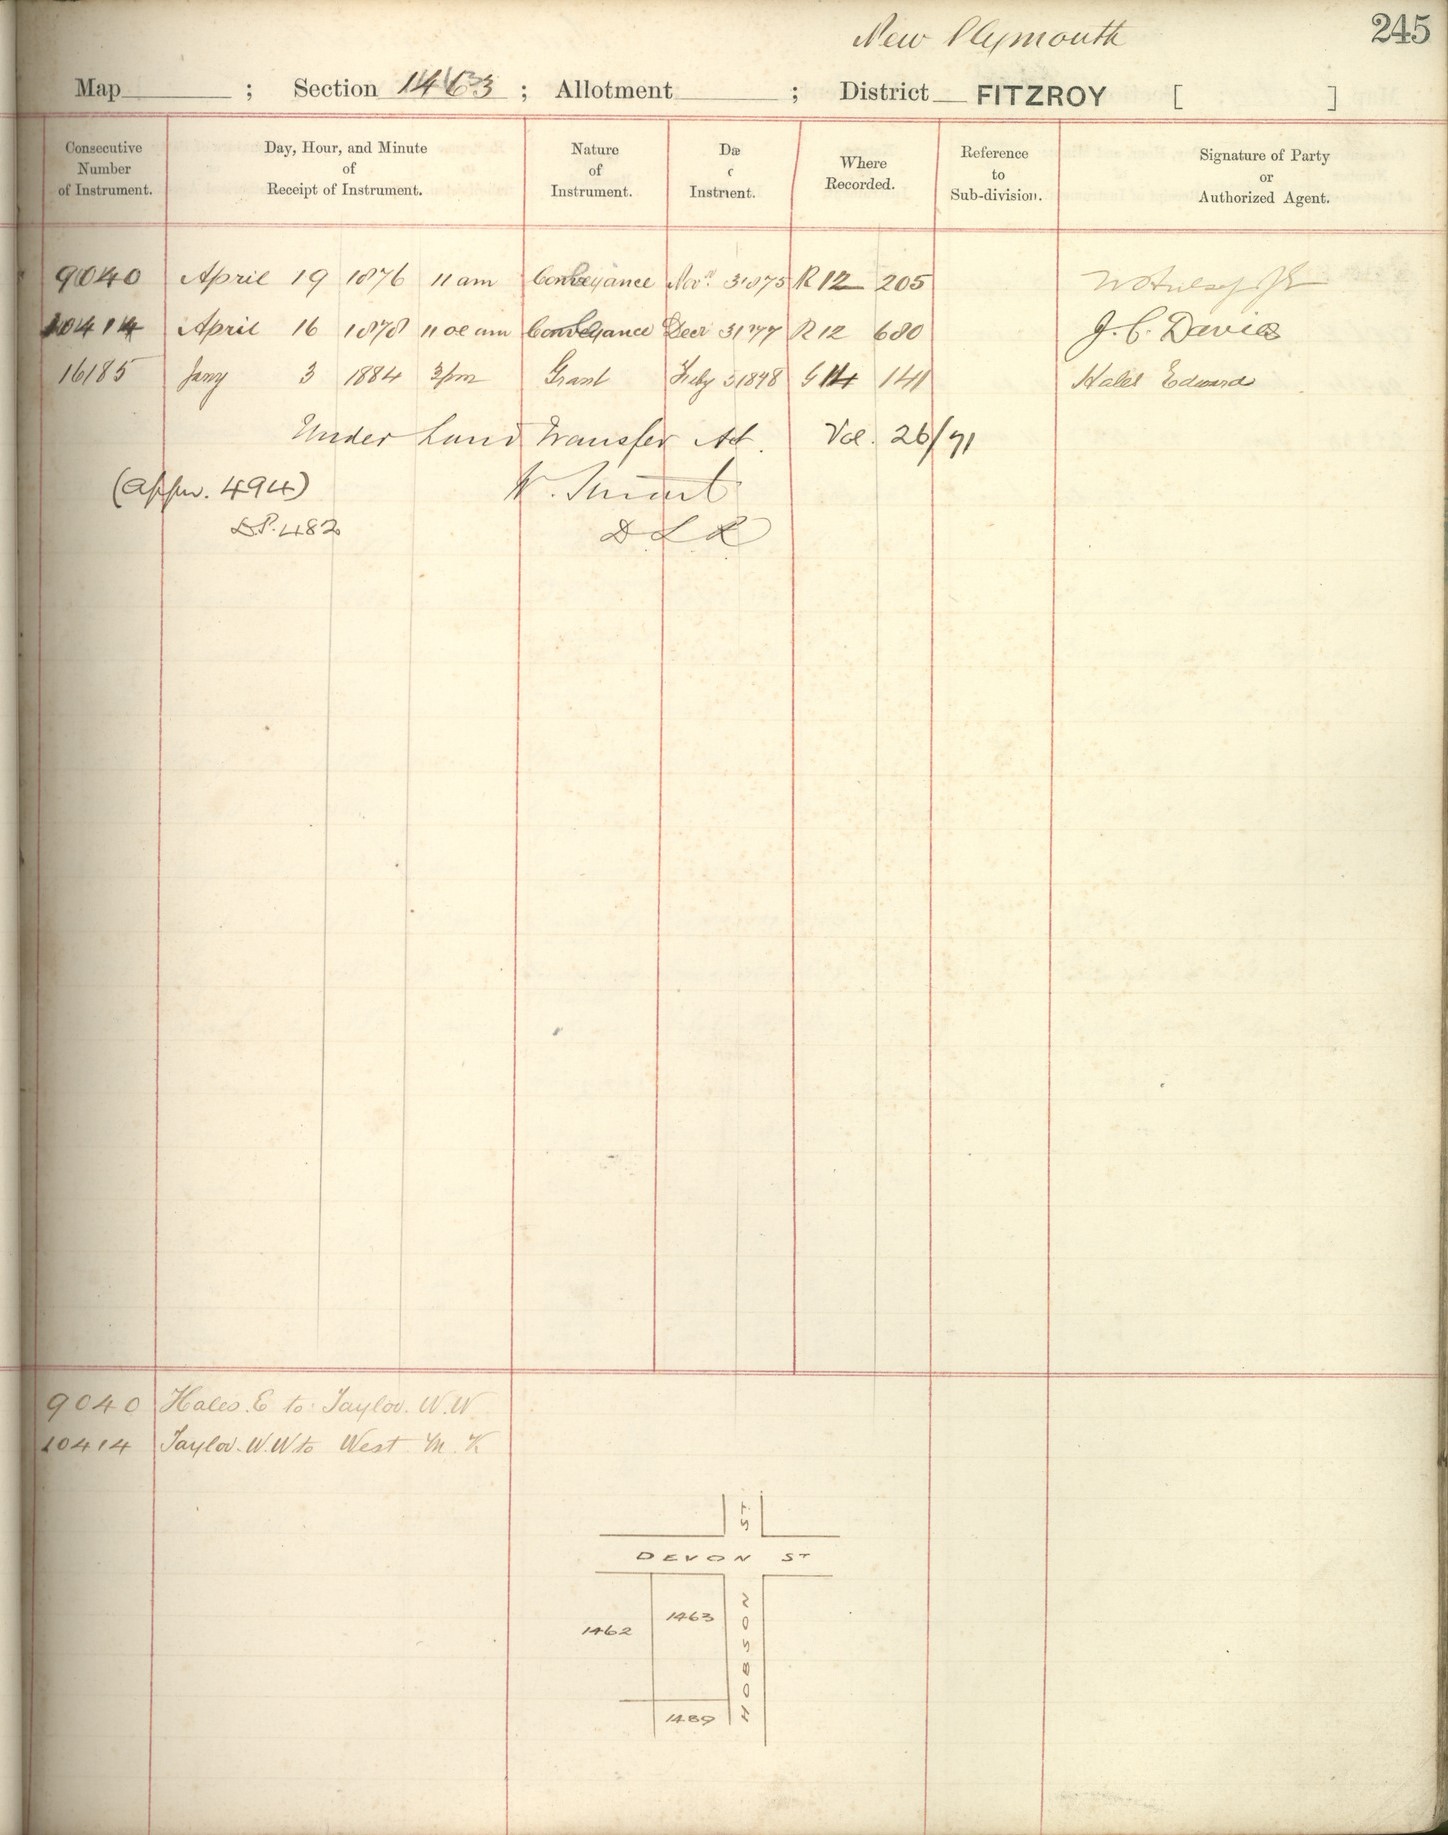 New Plymouth
245
Map ; Section 1463 ; Allotment ; District FITZROY [ ]
Consecutive Number of Instrument. Day, Hour, and Minute of Receipt of Instrument. Nature of Instrument. Where Recorded. Reference to Sub-division. Signature of Party or Authorized Agent.
9040 April 19 1876 11 am Conveyance Nov. 3 1875 R 12 205
10414 April 16 1878 Conveyance Decr 31 77 R 12 680 J. C. Davies
16185 Jany 3 1884 3 pm Grant Feby G 14 141 Hales Edward
Under Land Transfer Act. Vol. 26/71
(appn. 494) W. Stuart
D.P. 482 D L R
9040 Hales. E to Taylor. W. W
10414 Taylor. W. W to West M. K
ST.
DEVON ST
1462 1463
HOBSON
1489